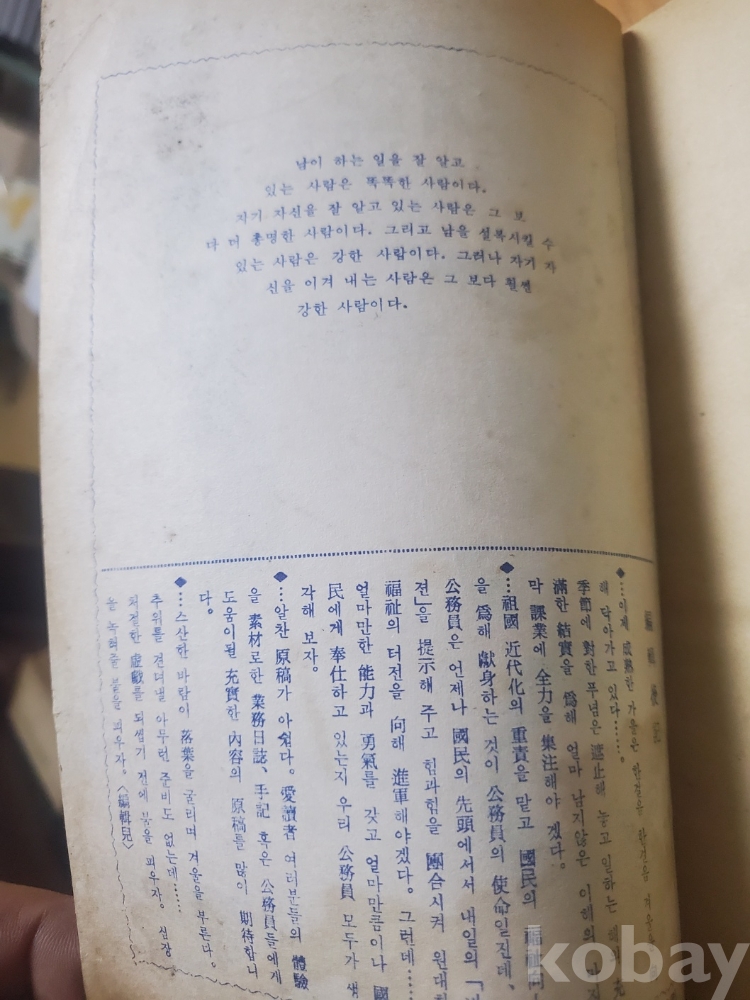 남이 하는 일을 잘 알고
있는 사람은 똑똑한 사람이다.
자기 자신을 잘 알고 있는 사람은 그 보
다 더 총명한 사람이다. 그리고 남을 설복시킬 수
있는 사람은 강한 사람이다. 그러나 자기 자
신을 이겨 내는 사람은 그 보다 훨씬
강한 사람이다.
編輯後記
◆…이제 成熟한 가을은 한걸음 한걸음 겨울을
해 닥아가고 있다……。
季節에 對한푸념은 遮止해 놓고 일하는 해의
滿한 結實을 爲해 얼마 남지않은 이해의 마지
막 課業에 全力을 集注해야 겠다。
◆…祖國 近代化의 重責을 맡고 國民의 福祉
을 爲해 獻身하는 것이 公務員의 使命일진데、
公務員은 언제나 國民의 先頭에서서 내일의 「
견」을 提示해 주고 힘과힘을 團合시켜 원대한
福祉의 터전을 向해 進軍해야겠다。그런데……
얼마만한 能力과 勇氣를 갖고 얼마만큼이나 國
民에게 奉仕하고 있는지 우리 公務員 모두가 생
각해 보자。
◆…알찬 原稿가 아쉽다。愛讀者 여러분들의 體驗
을 素材로한 業務日誌、手記 혹은 公務員들에게
도움이될 充實한 內容의 原稿를 많이 期待합니
다。
◆…스산한 바람이 落葉을 굴리며 겨울을 부른다。
추위를 견뎌낼 아무런 준비도 없는데……
처절한 虛戱를 되씹기 전에 불을 피우자。심장
을 녹혀줄 불을 피우자。〈編輯兒〉
kobay